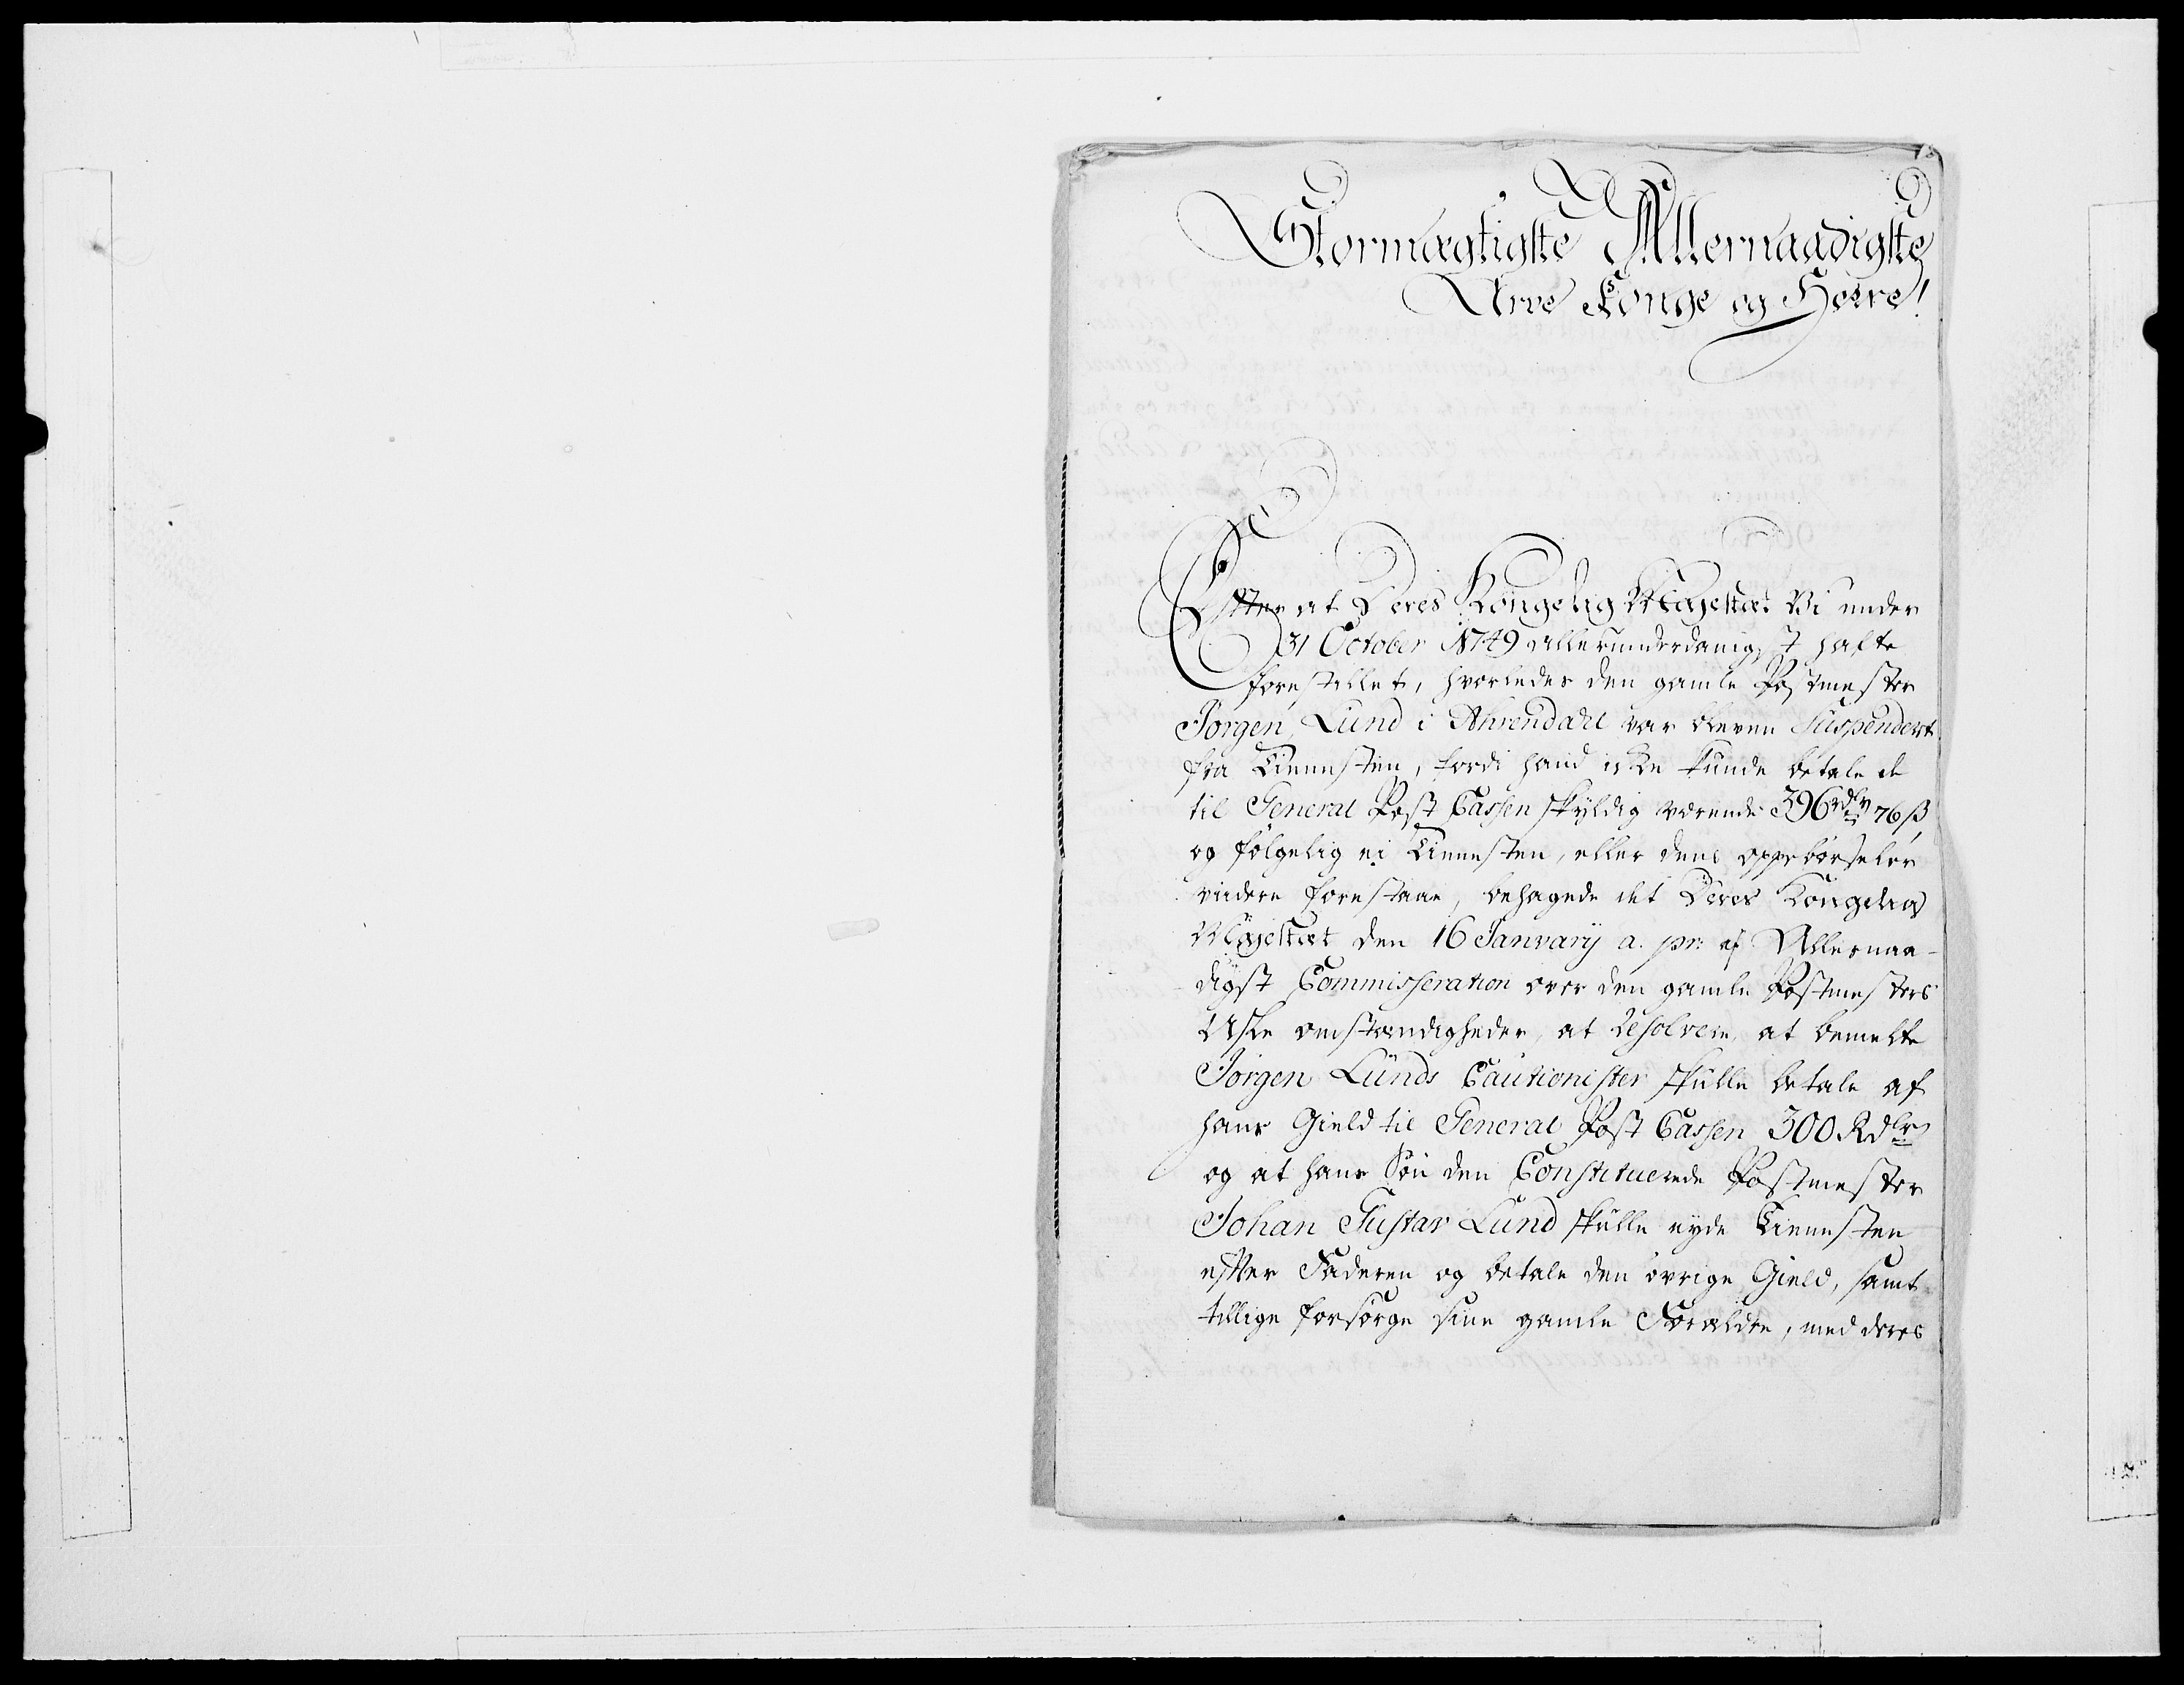 Stormægtigste Allernaadigste
Arve Konge og Herre!
Efter at Deres Kongelig Mayestæt Vi under
31 October 1749 allerunderdanigst hafte
forestillet, hvorledes den gamle Postmester
Jörgen Lund i Ahrendahl var bleven Suspendert
fra Tienesten, fordi hand icke kunde betale de
til General Post Cassen skyldig værende 396 rdlr 76 ß
og fölgelig ei Tienesten, eller dens oppebörseler
viidere forestaae, behagede det Deres Kongelig
Mayestæt den 16 January a. pr: af Allernaa-
digst Commisseration over den gamle Postmesters
Usle omstændigheder, at Resolvere, at bemelte
Jörgen Lunds Cautionister skulle betale af
hans Gield til General Post Cassen 300 Rdlr
og at hans Sön den Constituerede Postmester
Johan Gustav Lund skulle nyde Tienesten
efter Faderen og betale den övrige Gield, samt
tillige forsörge sine gamle Forældre, med deres